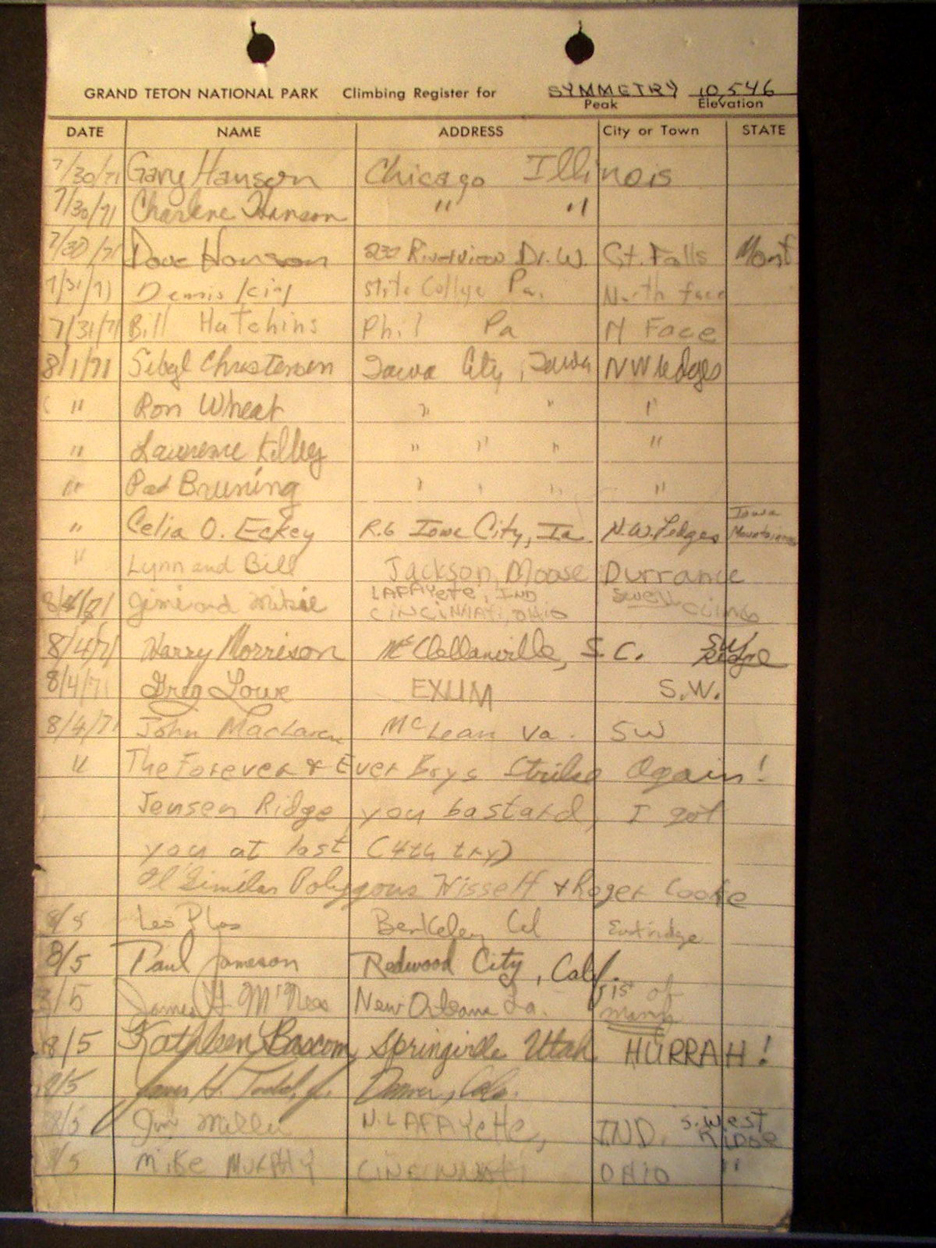 GRAND TETON NATIONAL PARK Climbing Register for SYMMETRY 10,546
Peak Elevation
DATE NAME ADDRESS City or Town STATE
7/30/71 Gary Hanson Chicago Illinois
7/30/71 Charlene Hanson " "
7/30/71 Dave Hanson 230 Riverview Dr. W. Gt. Falls Mont
7/31/71 Dennis King State College Pa. North face
7/31/71 Bill Hutchins Phil Pa N Face
8/1/71 Sibyl Christensen Iowa City, Iowa NW ledges
" Ron Wheat " " "
" Laurence Kelley " " " "
" Pat Bruning " " " "
" Celia O. Eckey R.6 Iowa City, Ia. N.W. Ledges Iowa Mountaineers
" Lynn and Bill Jackson, Moose Durrance
Jim and Mike LAFAYETTE, IND Swell
CINCINNATI, OHIO climb
8/4/71 Harry Morrison McClellanville, S.C. SW Ridge
8/4/71 Greg Lowe EXUM S.W.
8/4/71 John MacLaren McLean Va. SW
" The Forever & Ever Boys Strike Again!
Jensen Ridge you bastard, I got
you at last (4th try)
Ol Similar Polygons Wissett & Roger Cooke
8/5 Leo Berkeley Cal East ridge
8/5 Paul Jameson Redwood City, Calif.
8/5 James H. New Orleans La. 1st of many
8/5 Kathleen Bascom, Springville Utah HURRAH!
8/5 James H. Todd, Jr. Denver, Colo.
8/5 Jim Miller N. LAFAYETTE, IND. S. West Ridge
8/5 MIKE MURPHY CINCINNATI OHIO "